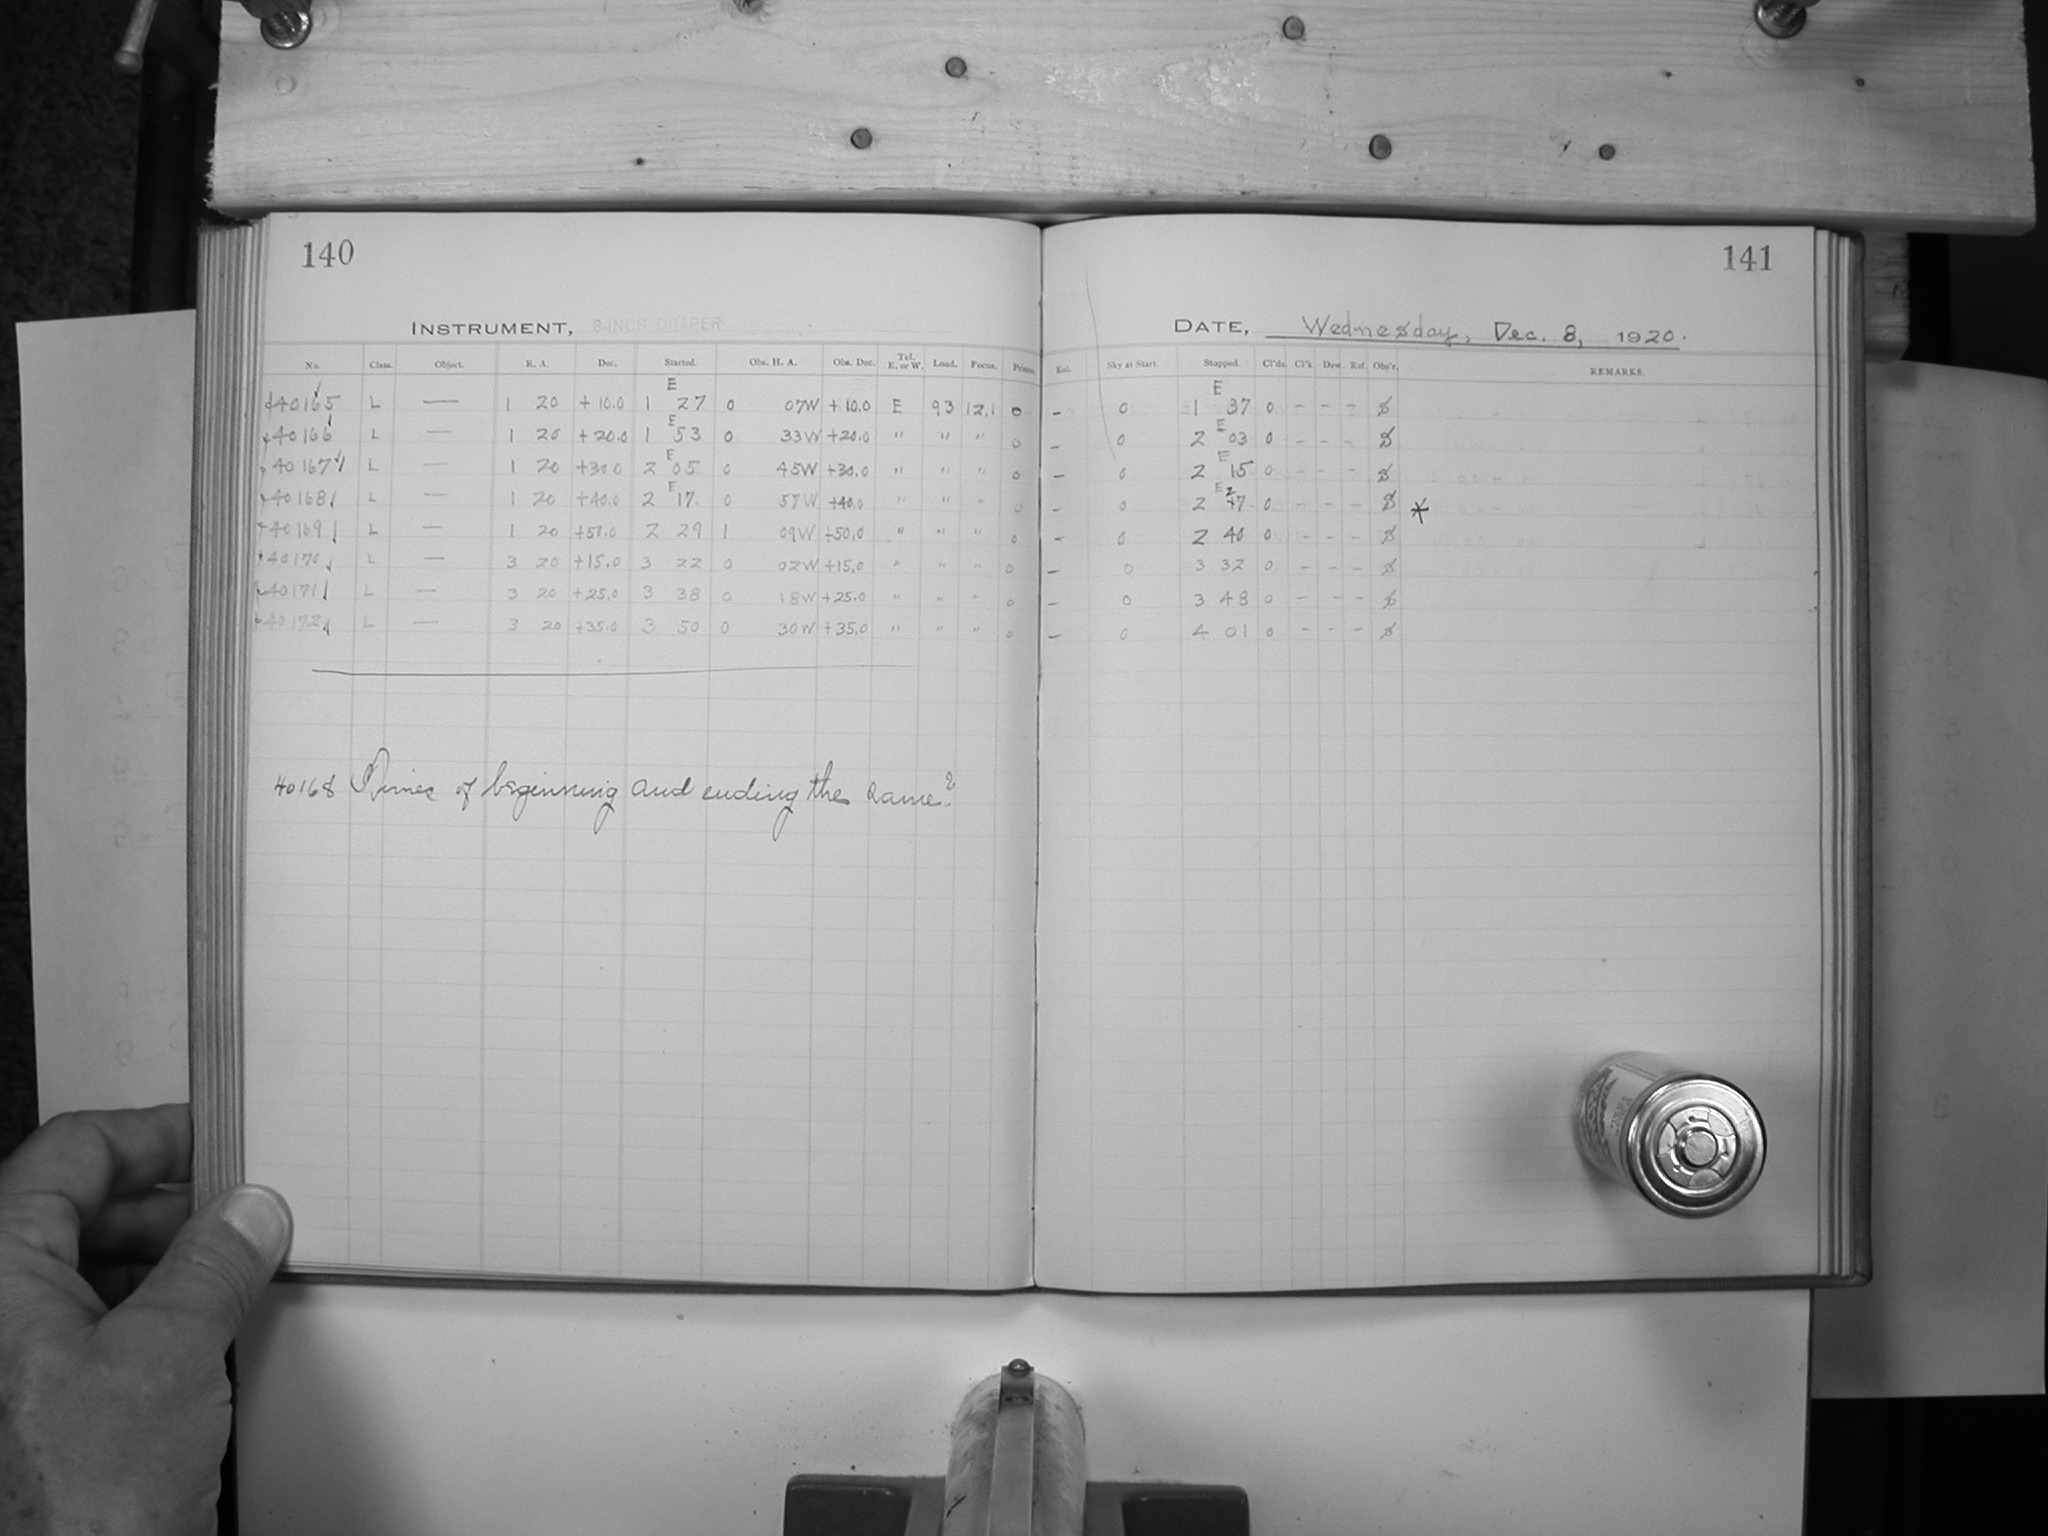 140
141
INSTRUMENT, 8-INCH DRAPER
DATE, Wednesday, Dec. 8, 1920.
No. Class. Object. R. A. Dec. Started. Obs. H. A. Obs. Dec. Tel. E. or W. Load. Focus. Prisms. Sky at Start. Stopped. Cl'ds. Cl'k Dew. Ref. Obs'r. REMARKS.
E E
40165 L — 1 20 +10.0 1 27 0 07W +10.0 E 93 12.1 0 - 0 1 37 0 - - - S
E E
40166 L — 1 20 +20.0 1 53 0 33W +20.0 " " " 0 - 0 2 03 0 - - - S
E E
40167 L — 1 20 +30.0 2 05 0 45W +30.0 " " " 0 - 0 2 15 0 - - - S
E E 2
40168 L — 1 20 +40.0 2 17 0 57W +40.0 " " " 0 - 0 2 17 0 - - - S *
40169 L — 1 20 +50.0 2 29 1 09W +50.0 " " " 0 - 0 2 40 0 - - - S
40170 L — 3 20 +15.0 3 22 0 02W +15.0 " " " 0 - 0 3 32 0 - - - S
40171 L — 3 20 +25.0 3 38 0 18W +25.0 " " " 0 - 0 3 48 0 - - - S
40172 L — 3 20 +35.0 3 50 0 30W +35.0 " " " 0 - 0 4 01 0 - - - S
40168 Times of beginning and ending the same?